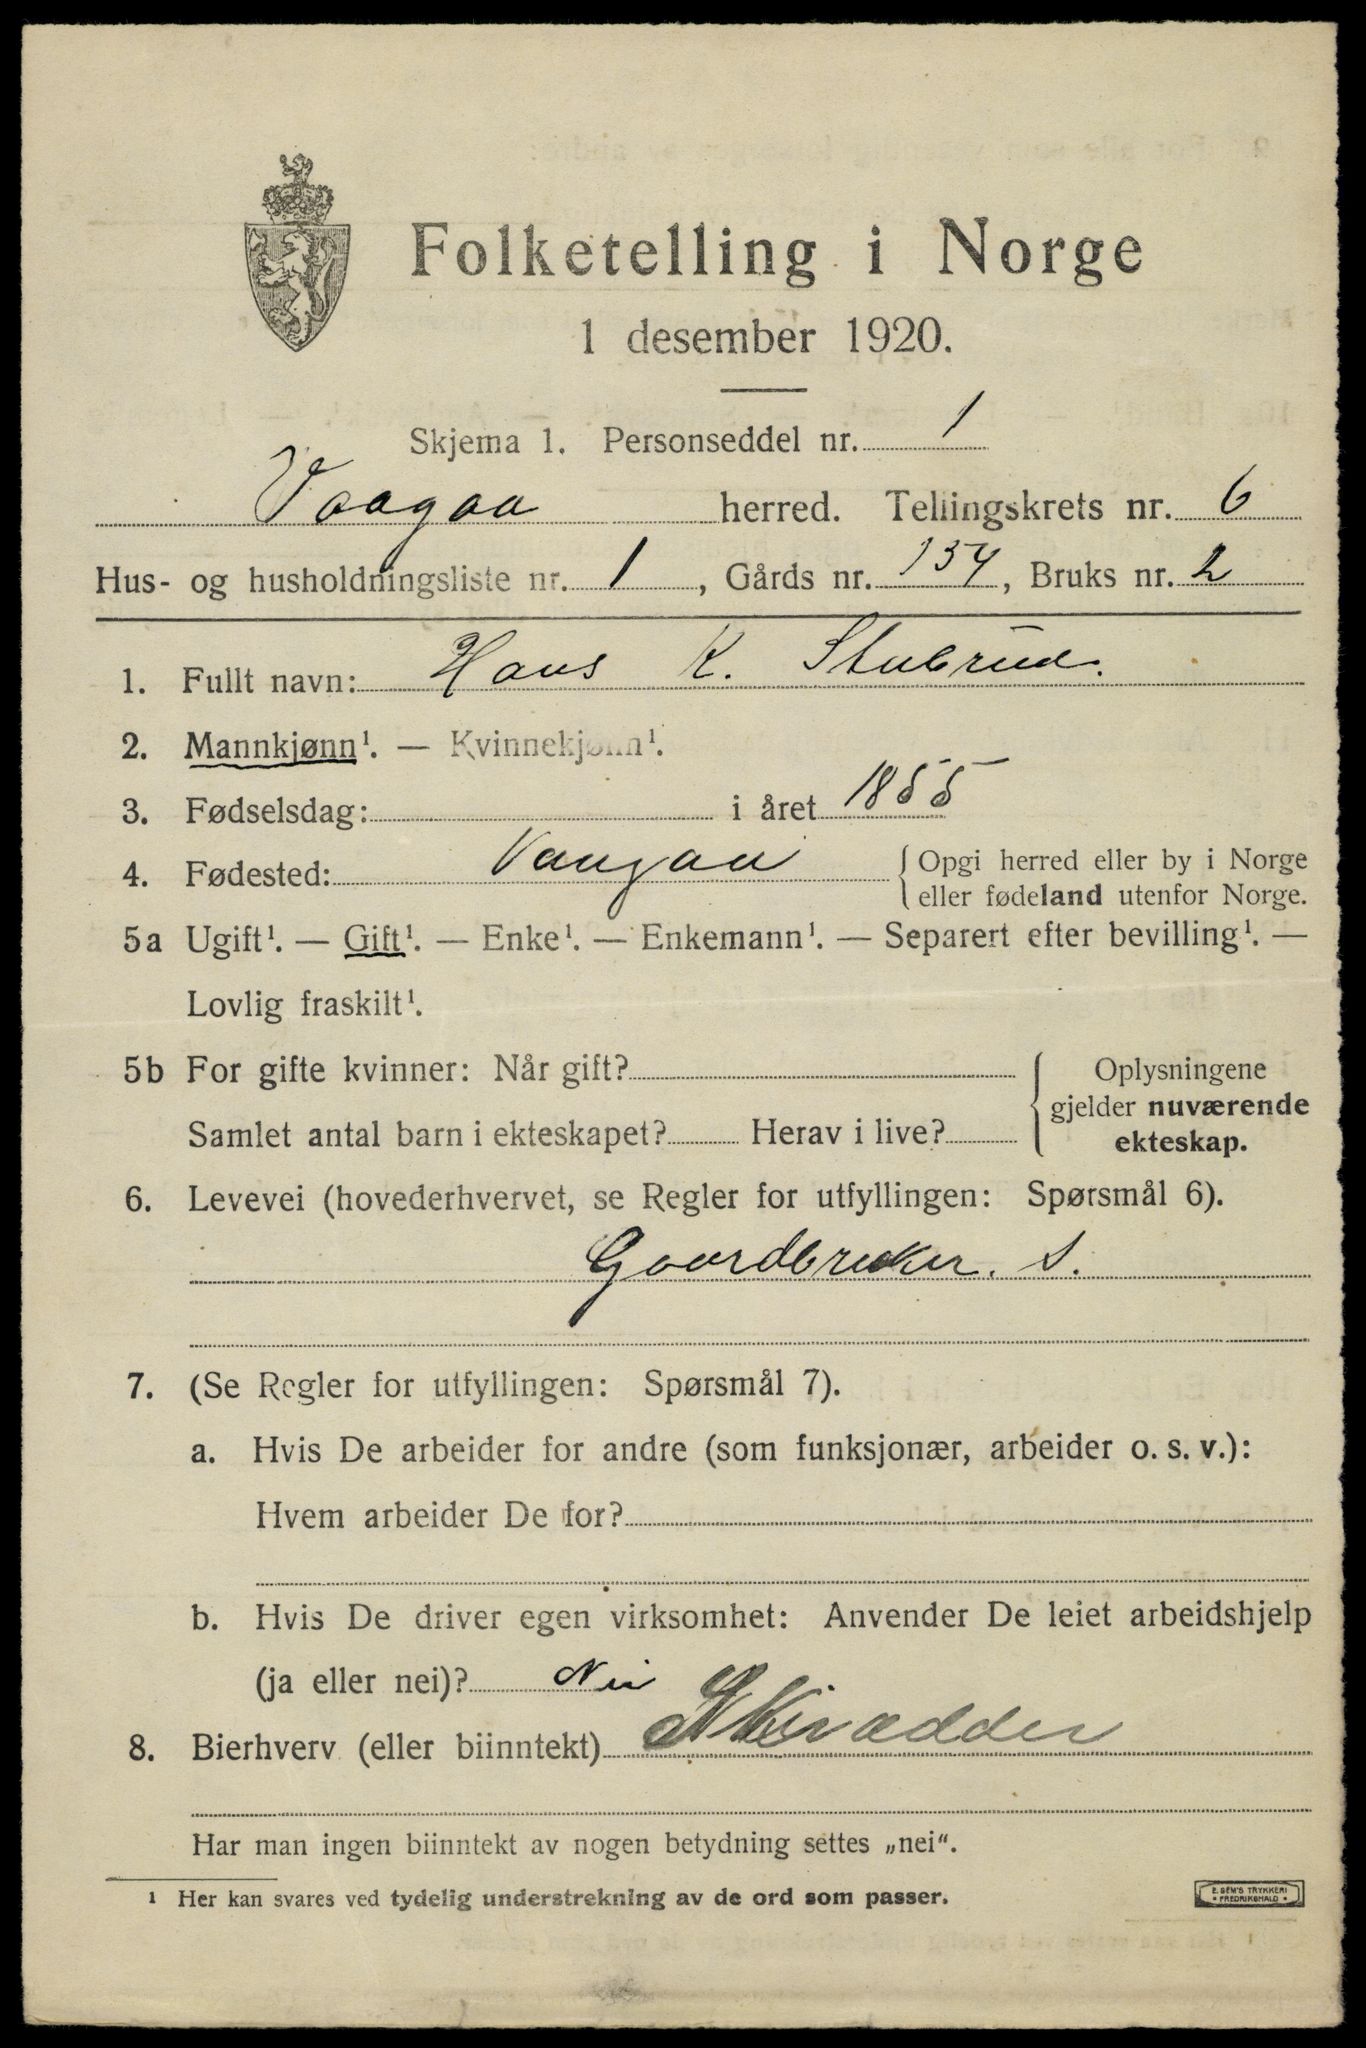 Folketelling i Norge
1 desember 1920.
Skjema 1. Personseddel nr. 1
Vaagaa herred. Tellingskrets nr. 6
Hus- og husholdningsliste nr. 1, Gårds nr. 154, Bruks nr. 2
1. Fullt navn: Hans K. Stubrud.
2. Mannkjønn¹. — Kvinnekjønn¹.
3. Fødselsdag: i året 1855
4. Fødested: Vaagaa { Opgi herred eller by i Norge
eller fødeland utenfor Norge.
5a Ugift¹. — Gift¹. — Enke¹. — Enkemann¹. — Separert efter bevilling¹. —
Lovlig fraskilt¹.
5b For gifte kvinner: Når gift? { Oplysningene
gjelder nuværende
Samlet antal barn i ekteskapet? Herav i live?
ekteskap.
6. Levevei (hovederhvervet, se Regler for utfyllingen: Spørsmål 6).
Gaardbruker. S.
7. (Se Regler for utfyllingen: Spørsmål 7).
a. Hvis De arbeider for andre (som funksjonær, arbeider o. s. v.):
Hvem arbeider De for?
b. Hvis De driver egen virksomhet: Anvender De leiet arbeidshjelp
(ja eller nei)? Nei
8. Bierhverv (eller biinntekt) Skrædder
Har man ingen biinntekt av nogen betydning settes „nei“.
¹ Her kan svares ved tydelig understrekning av de ord som passer.
E. SEM'S TRYKKERI
• FREDRIKSHALD •